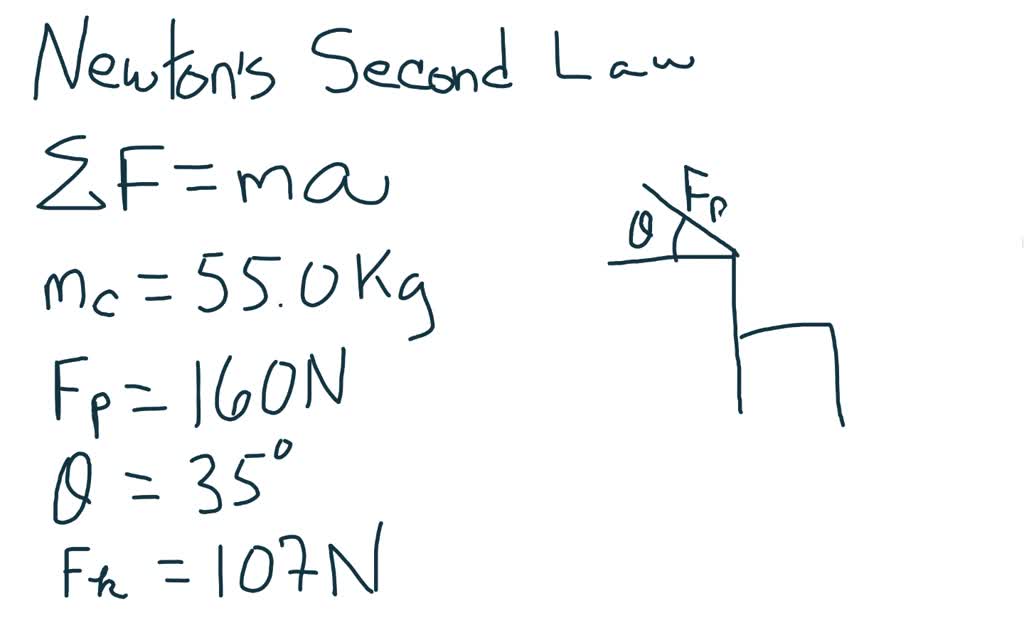 Newton's Second Law
ΣF = ma
m_c = 55.0 Kg
F_p = 160N
θ = 35°
F_k = 107N
F_p
θ